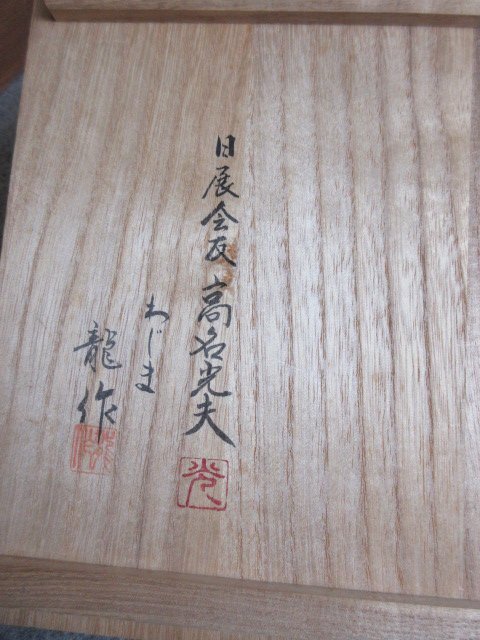 日展会友 高名光夫
わじま
龍作
光